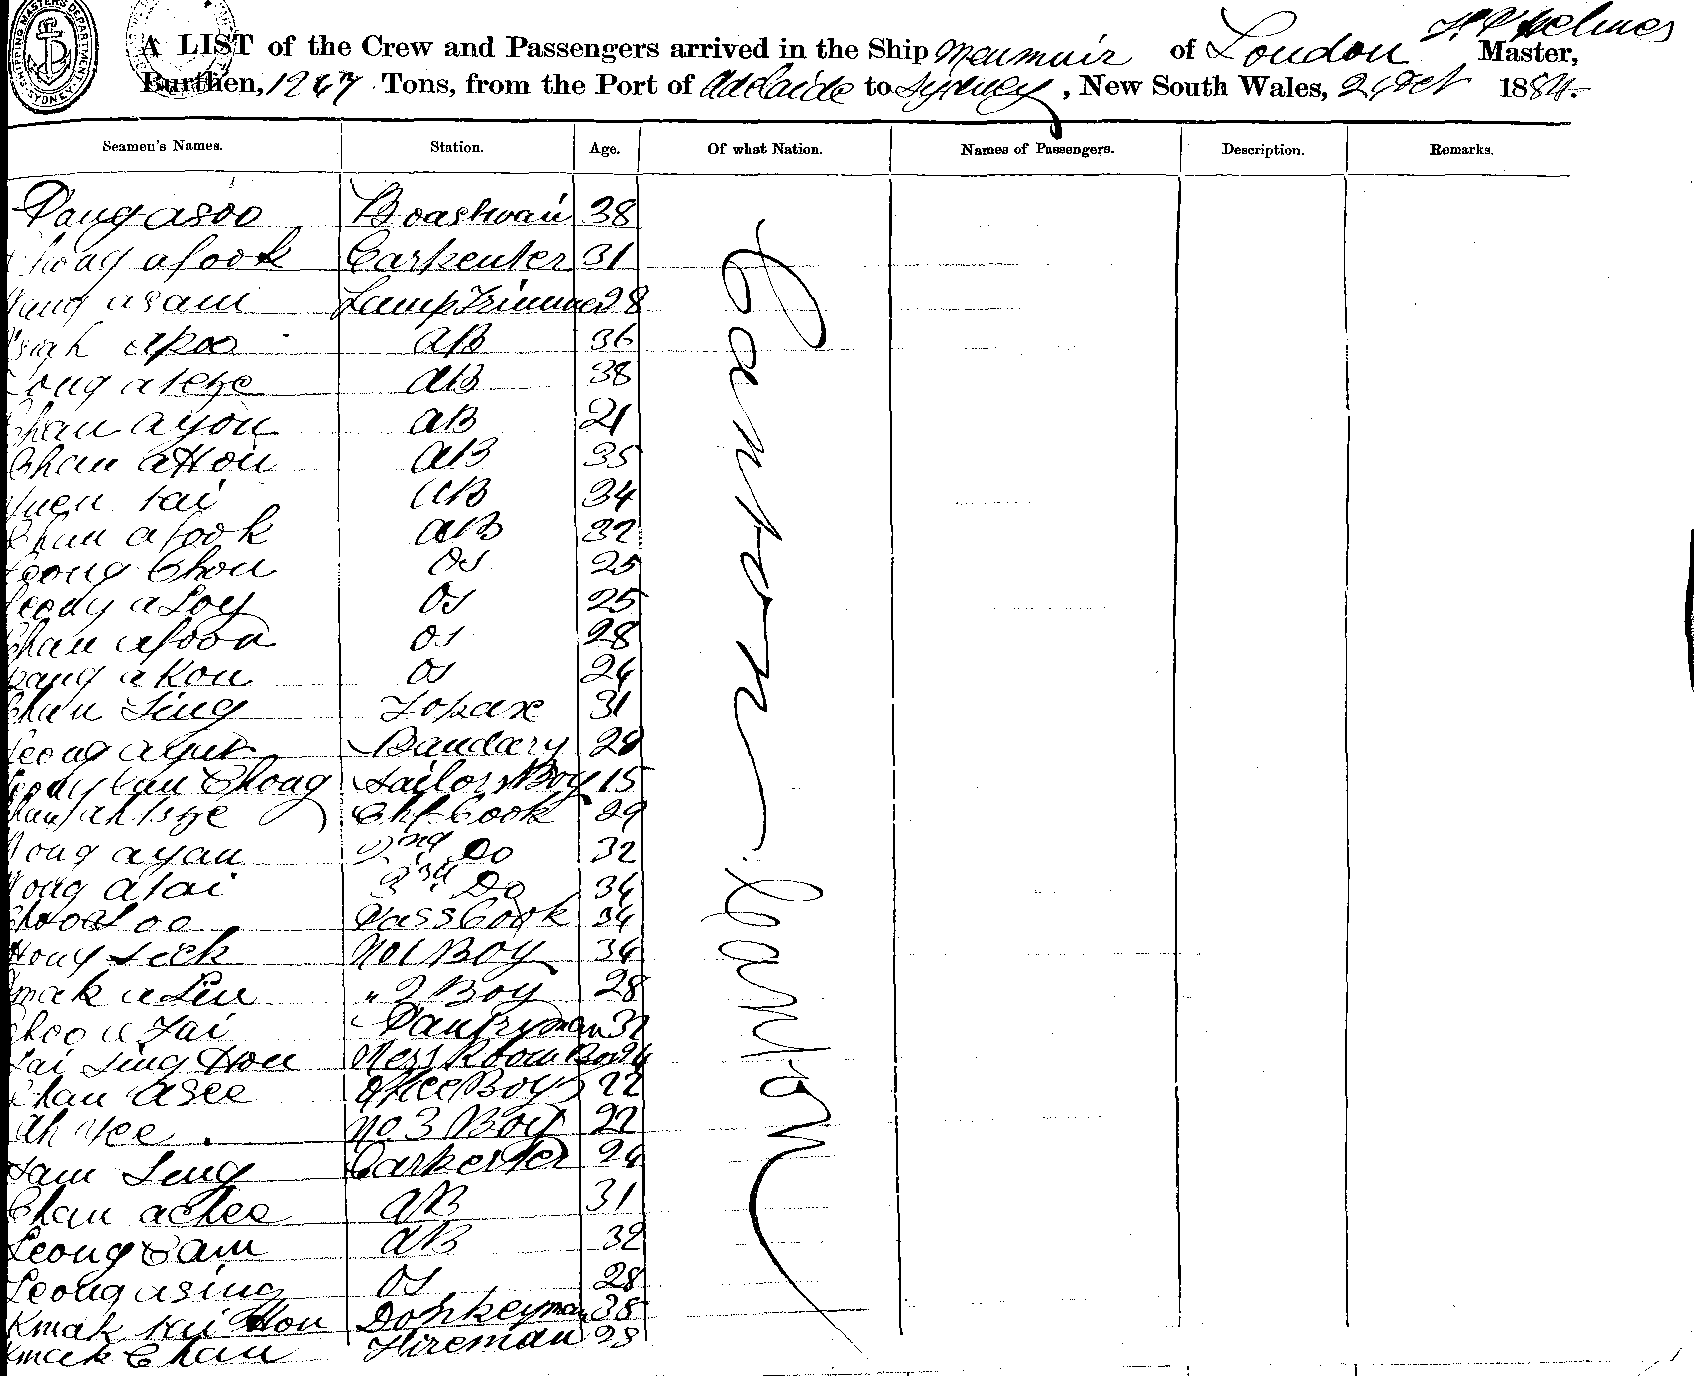 SHIPPING MASTERS DEPARTMENT SYDNEY
A LIST of the Crew and Passengers arrived in the Ship Menmuir of London Master,
Burthen, 1247 Tons, from the Port of Adelaide to Sydney, New South Wales, Oct 1884.
Seamen's Names. Station. Age. Of what Nation. Names of Passengers. Description. Remarks.
asoo Boastwain 38
afook Carpenter 31
asam Lamp Trimmer 28
apoo AB 36
AB 38
Chan ayou AB 21
Chan aHou AB 35
Yuen tai AB 34
Chan afook AB 32
Leong Chou OS 25
Leong aLoy OS 25
Chan OS 28
akou OS 24
Chan Sing Topaze 31
Leong Bandary 29
Leong Choag Sailors Boy 15
Chan ah Chf Cook 29
Wong ayau 2nd Do 32
Wong atai 3rd Do 34
Pass Cook 34
Hong No 1 Boy 34
Kmak " 2 Boy 28
Choo a Tai Pantryman 32
Lai Sing Hou Mess Room Boy 24
Chan asee Office Boy 22
Ah Yee No 3 Boy 22
Sam Sing Carpenter 24
Chan achee AB 31
Leong Sam AB 32
Leong asing OS 28
Kmak Hou Donkeyman 38
Kmak Chau Fireman 28
Canton
Canton